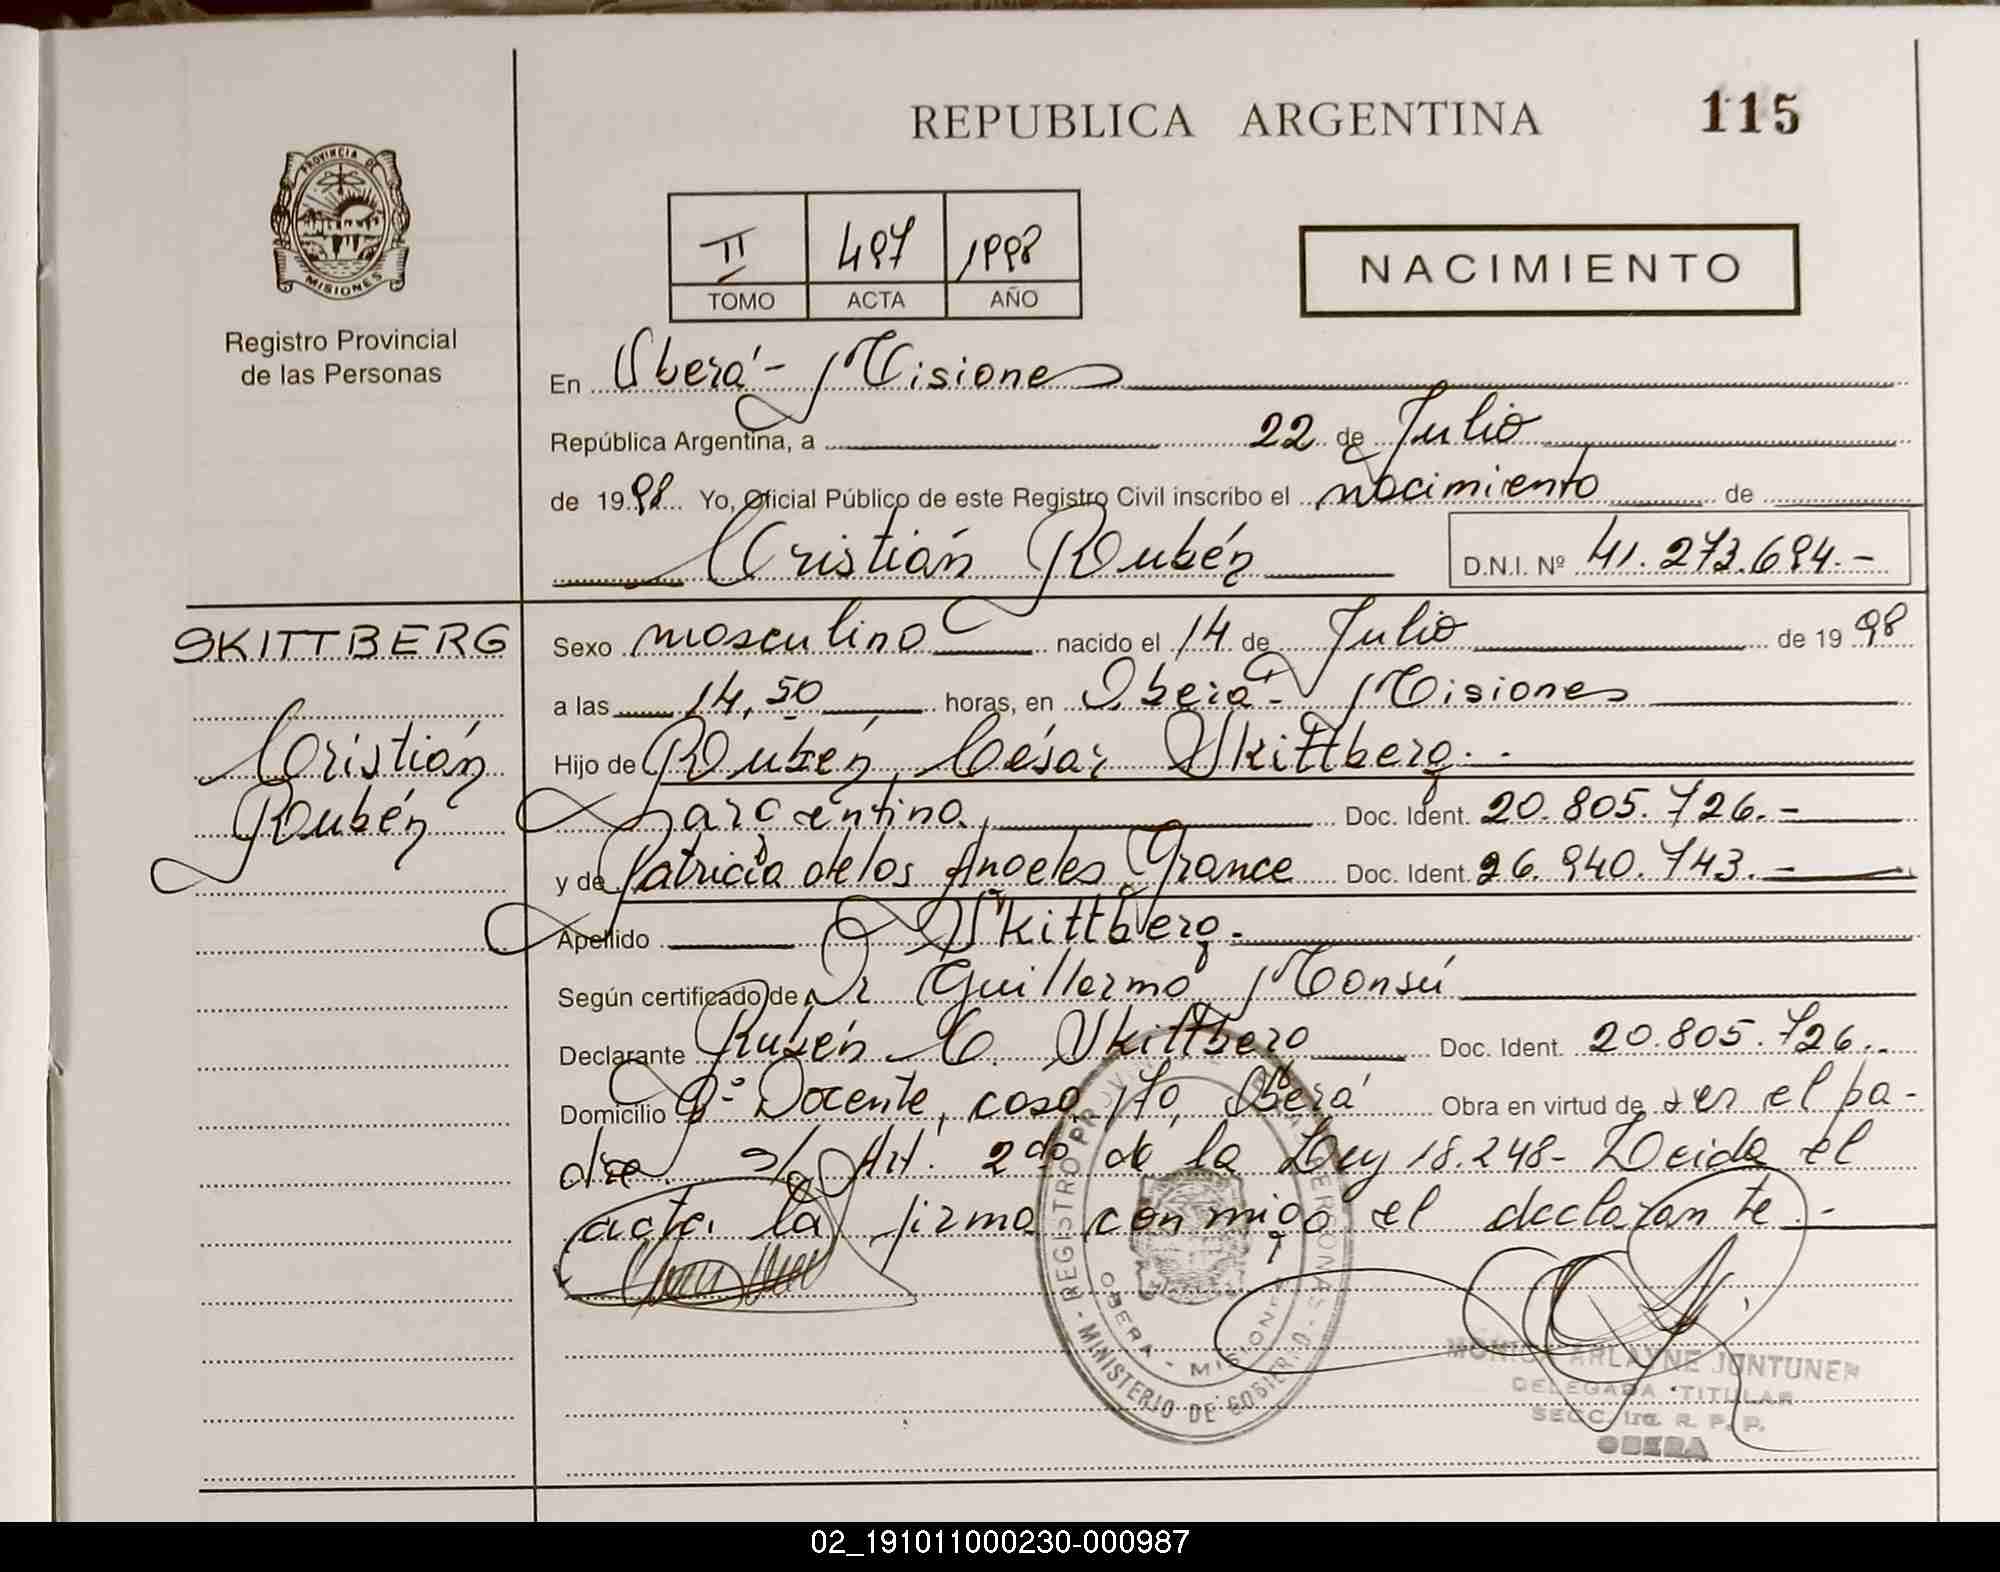 REPUBLICA ARGENTINA
115
PROVINCIA DE
MISIONES
Registro Provincial
de las Personas
II 497 1998
TOMO ACTA AÑO
NACIMIENTO
En Oberá - Misiones
República Argentina, a 22 de Julio
de 1998 Yo, Oficial Público de este Registro Civil inscribo el nacimiento de
Cristián Rubén
D.N.I. Nº 41.273.694.-
SKITTBERG
Cristián
Rubén
Sexo masculino nacido el 14 de Julio de 1998
a las 14,50 horas, en Oberá - Misiones
Hijo de Rubén César Skittberg.-
argentino, Doc. Ident. 20.805.726.-
y de Patricia de los Angeles Grance Doc. Ident. 26.940.743.-
Apellido Skittberg.-
Según certificado de Dr Guillermo Monsú
Declarante Rubén C. Skittberg Doc. Ident. 20.805.726.-
Domicilio Bº Docente, casa 170, Oberá Obra en virtud de ser el pa-
dre. s/ Art. 2do de la Ley 18.248- Leida el
acta la firma conmigo el declarante.-
REGISTRO PROVINCIAL DE LAS PERSONAS - MINISTERIO DE GOBIERNO -
OBERA - MISIONES
MONICA ARLAYNE JONTUNEN
DELEGADA TITULAR
SECC. 1ra. R. P. P.
OBERA
02_191011000230-000987